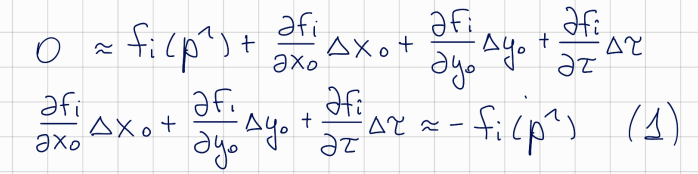 0 ≈ fi(p^1) + ∂fi/∂x₀ Δx₀ + ∂fi/∂y₀ Δy₀ + ∂fi/∂τ Δτ
∂fi/∂x₀ Δx₀ + ∂fi/∂y₀ Δy₀ + ∂fi/∂τ Δτ ≈ - fi(p^1) (1)